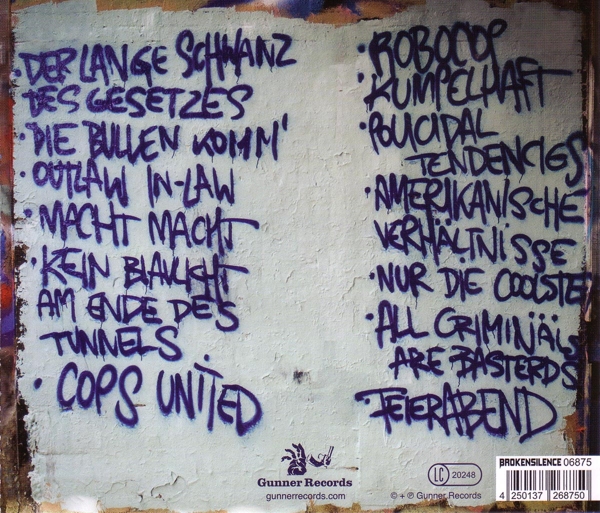 · DER LANGE SCHWANZ
DES GESETZES
· DIE BULLEN KOMM'
· OUTLAW IN-LAW
· MACHT MACHT
· KEIN BLAULICHT
AM ENDE DES
TUNNELS
· COPS UNITED
· ROBOCOP
· KUMPELHAFT
· POLICIDAL
TENDENCIES
· AMERIKANISCHE
VERHÄLTNISSE
· NUR DIE COOLSTEN
· ALL CRIMINÄLS
ARE BASTERDS
· FEIERABEND
Gunner Records
gunnerrecords.com
© + ℗ Gunner Records
LC 20248
BROKENSILENCE 06875
4 250137 268750